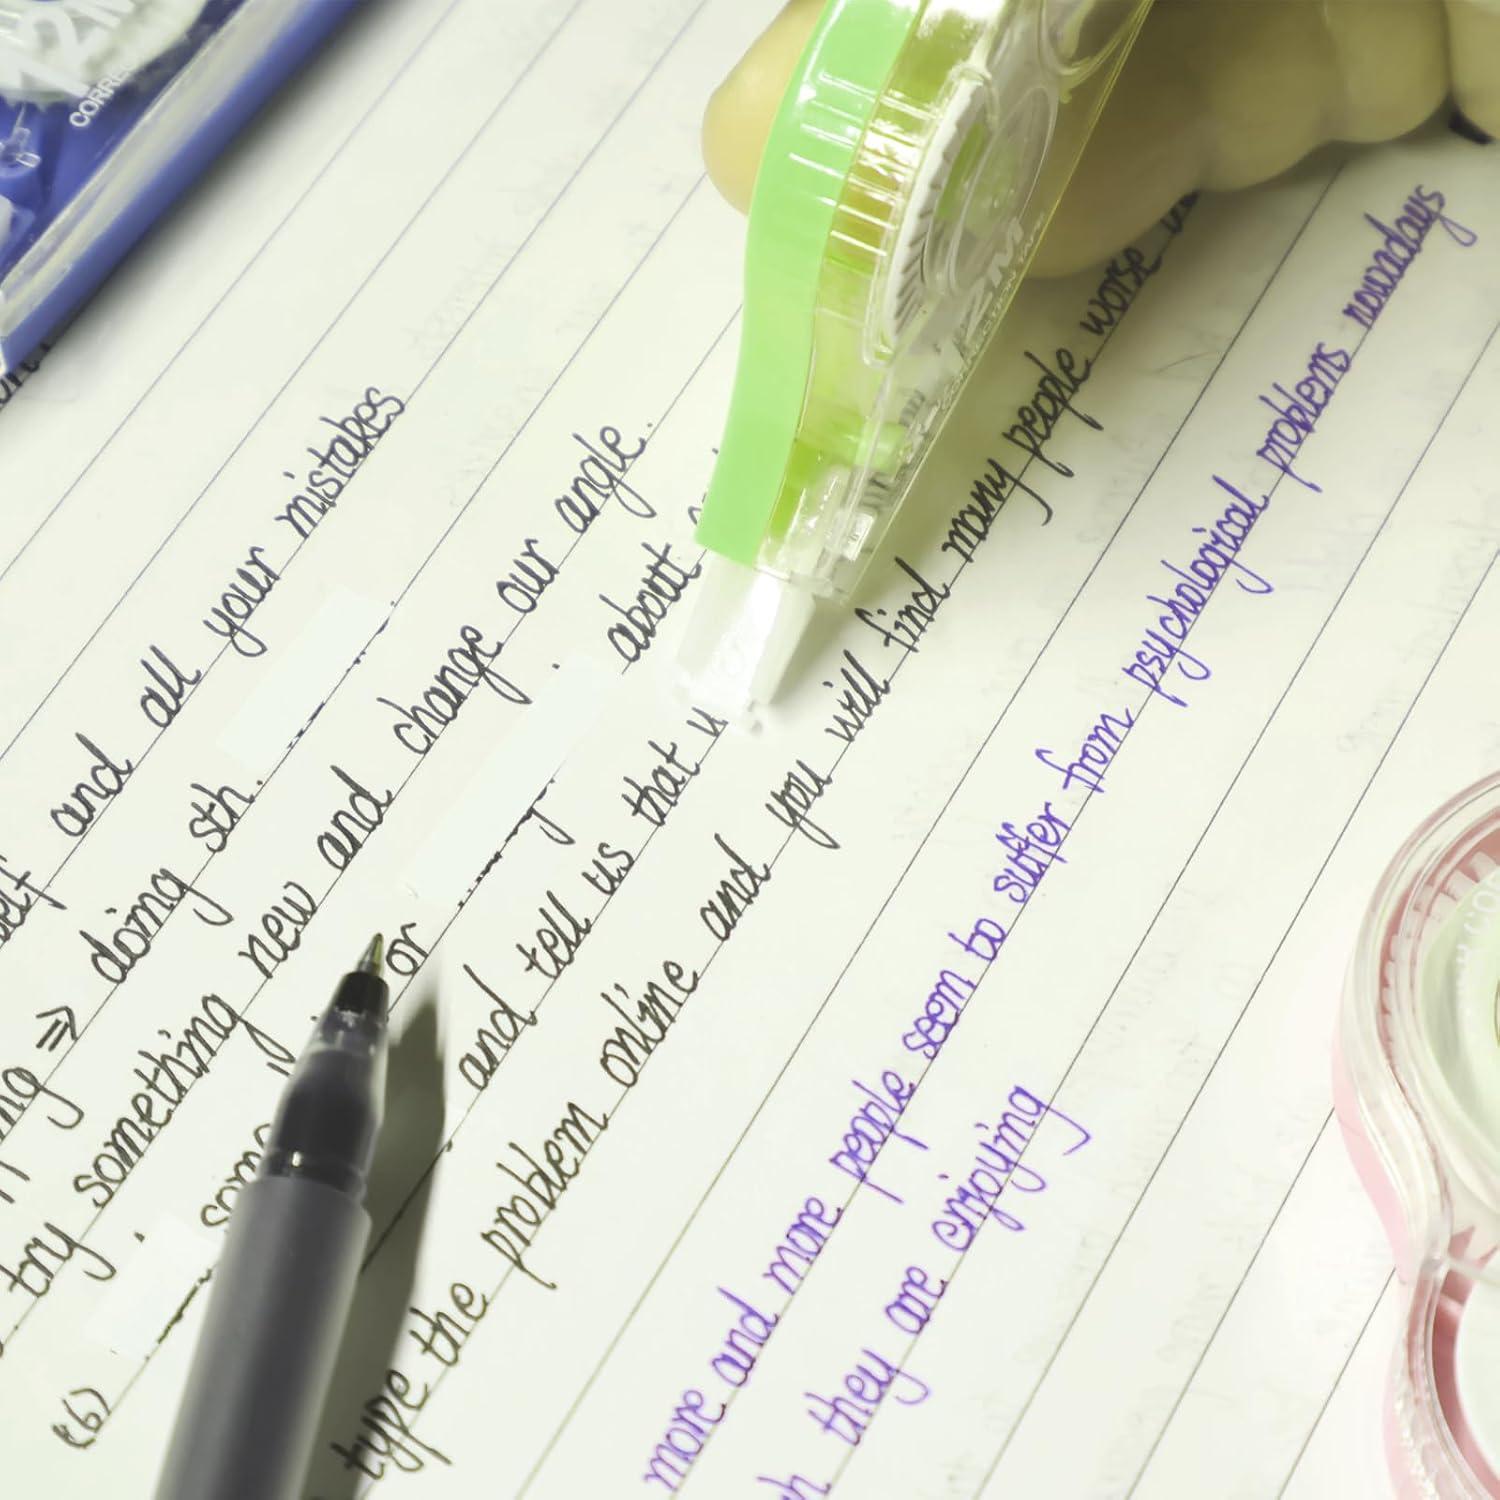 and all your mistakes
doing sth.
try something new and change our angle.
or about
(6)
and tell us that
type the problem online and you will find many people worse
more and more people seem to suffer from psychological problems nowadays
they are enjoying
12M
CORRECTION TAPE